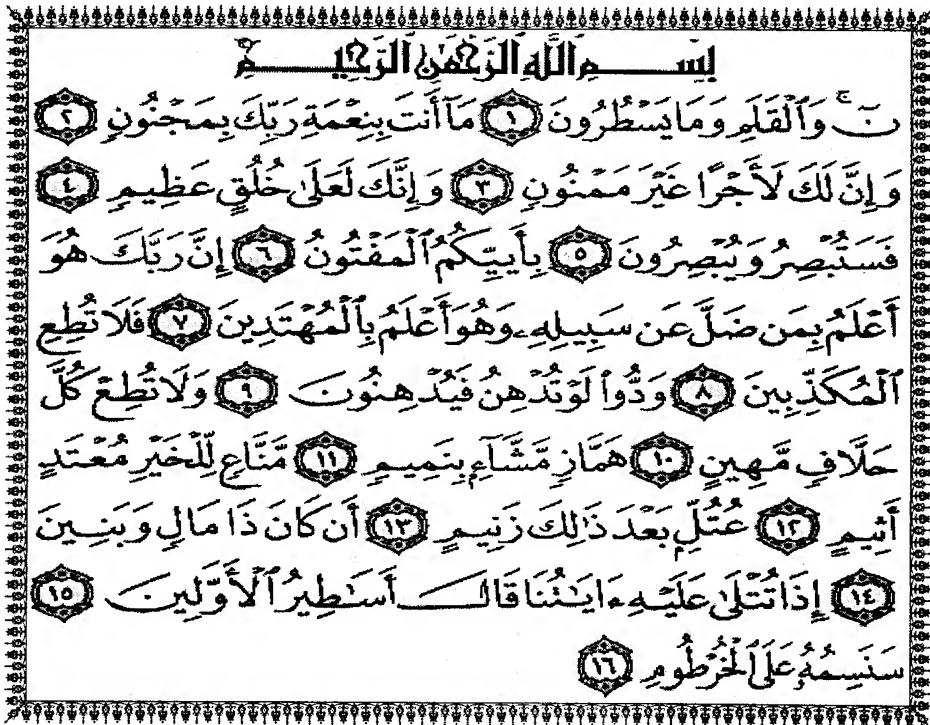 بِسْمِ اللَّهِ الرَّحْمَٰنِ الرَّحِيمِ
نٓ ۚ وَٱلْقَلَمِ وَمَا يَسْطُرُونَ ١ مَآ أَنتَ بِنِعْمَةِ رَبِّكَ بِمَجْنُونٍ ٢
وَإِنَّ لَكَ لَأَجْرًا غَيْرَ مَمْنُونٍ ٣ وَإِنَّكَ لَعَلَىٰ خُلُقٍ عَظِيمٍ ٤
فَسَتُبْصِرُ وَيُبْصِرُونَ ٥ بِأَييِّكُمُ ٱلْمَفْتُونُ ٦ إِنَّ رَبَّكَ هُوَ
أَعْلَمُ بِمَن ضَلَّ عَن سَبِيلِهِۦ وَهُوَ أَعْلَمُ بِٱلْمُهْتَدِينَ ٧ فَلَا تُطِعِ
ٱلْمُكَذِّبِينَ ٨ وَدُّوا۟ لَوْ تُدْهِنُ فَيُدْهِنُونَ ٩ وَلَا تُطِعْ كُلَّ
حَلَّافٍ مَّهِينٍ ١٠ هَمَّازٍ مَّشَّآءٍۭ بِنَمِيمٍ ١١ مَّنَّاعٍ لِّلْخَيْرِ مُعْتَدٍ
أَثِيمٍ ١٢ عُتُلٍّۭ بَعْدَ ذَٰلِكَ زَنِيمٍ ١٣ أَن كَانَ ذَا مَالٍ وَبَنِينَ
١٤ إِذَا تُتْلَىٰ عَلَيْهِ ءَايَٰتُنَا قَالَ أَسَٰطِيرُ ٱلْأَوَّلِينَ ١٥
سَنَسِمُهُۥ عَلَى ٱلْخُرْطُومِ ١٦